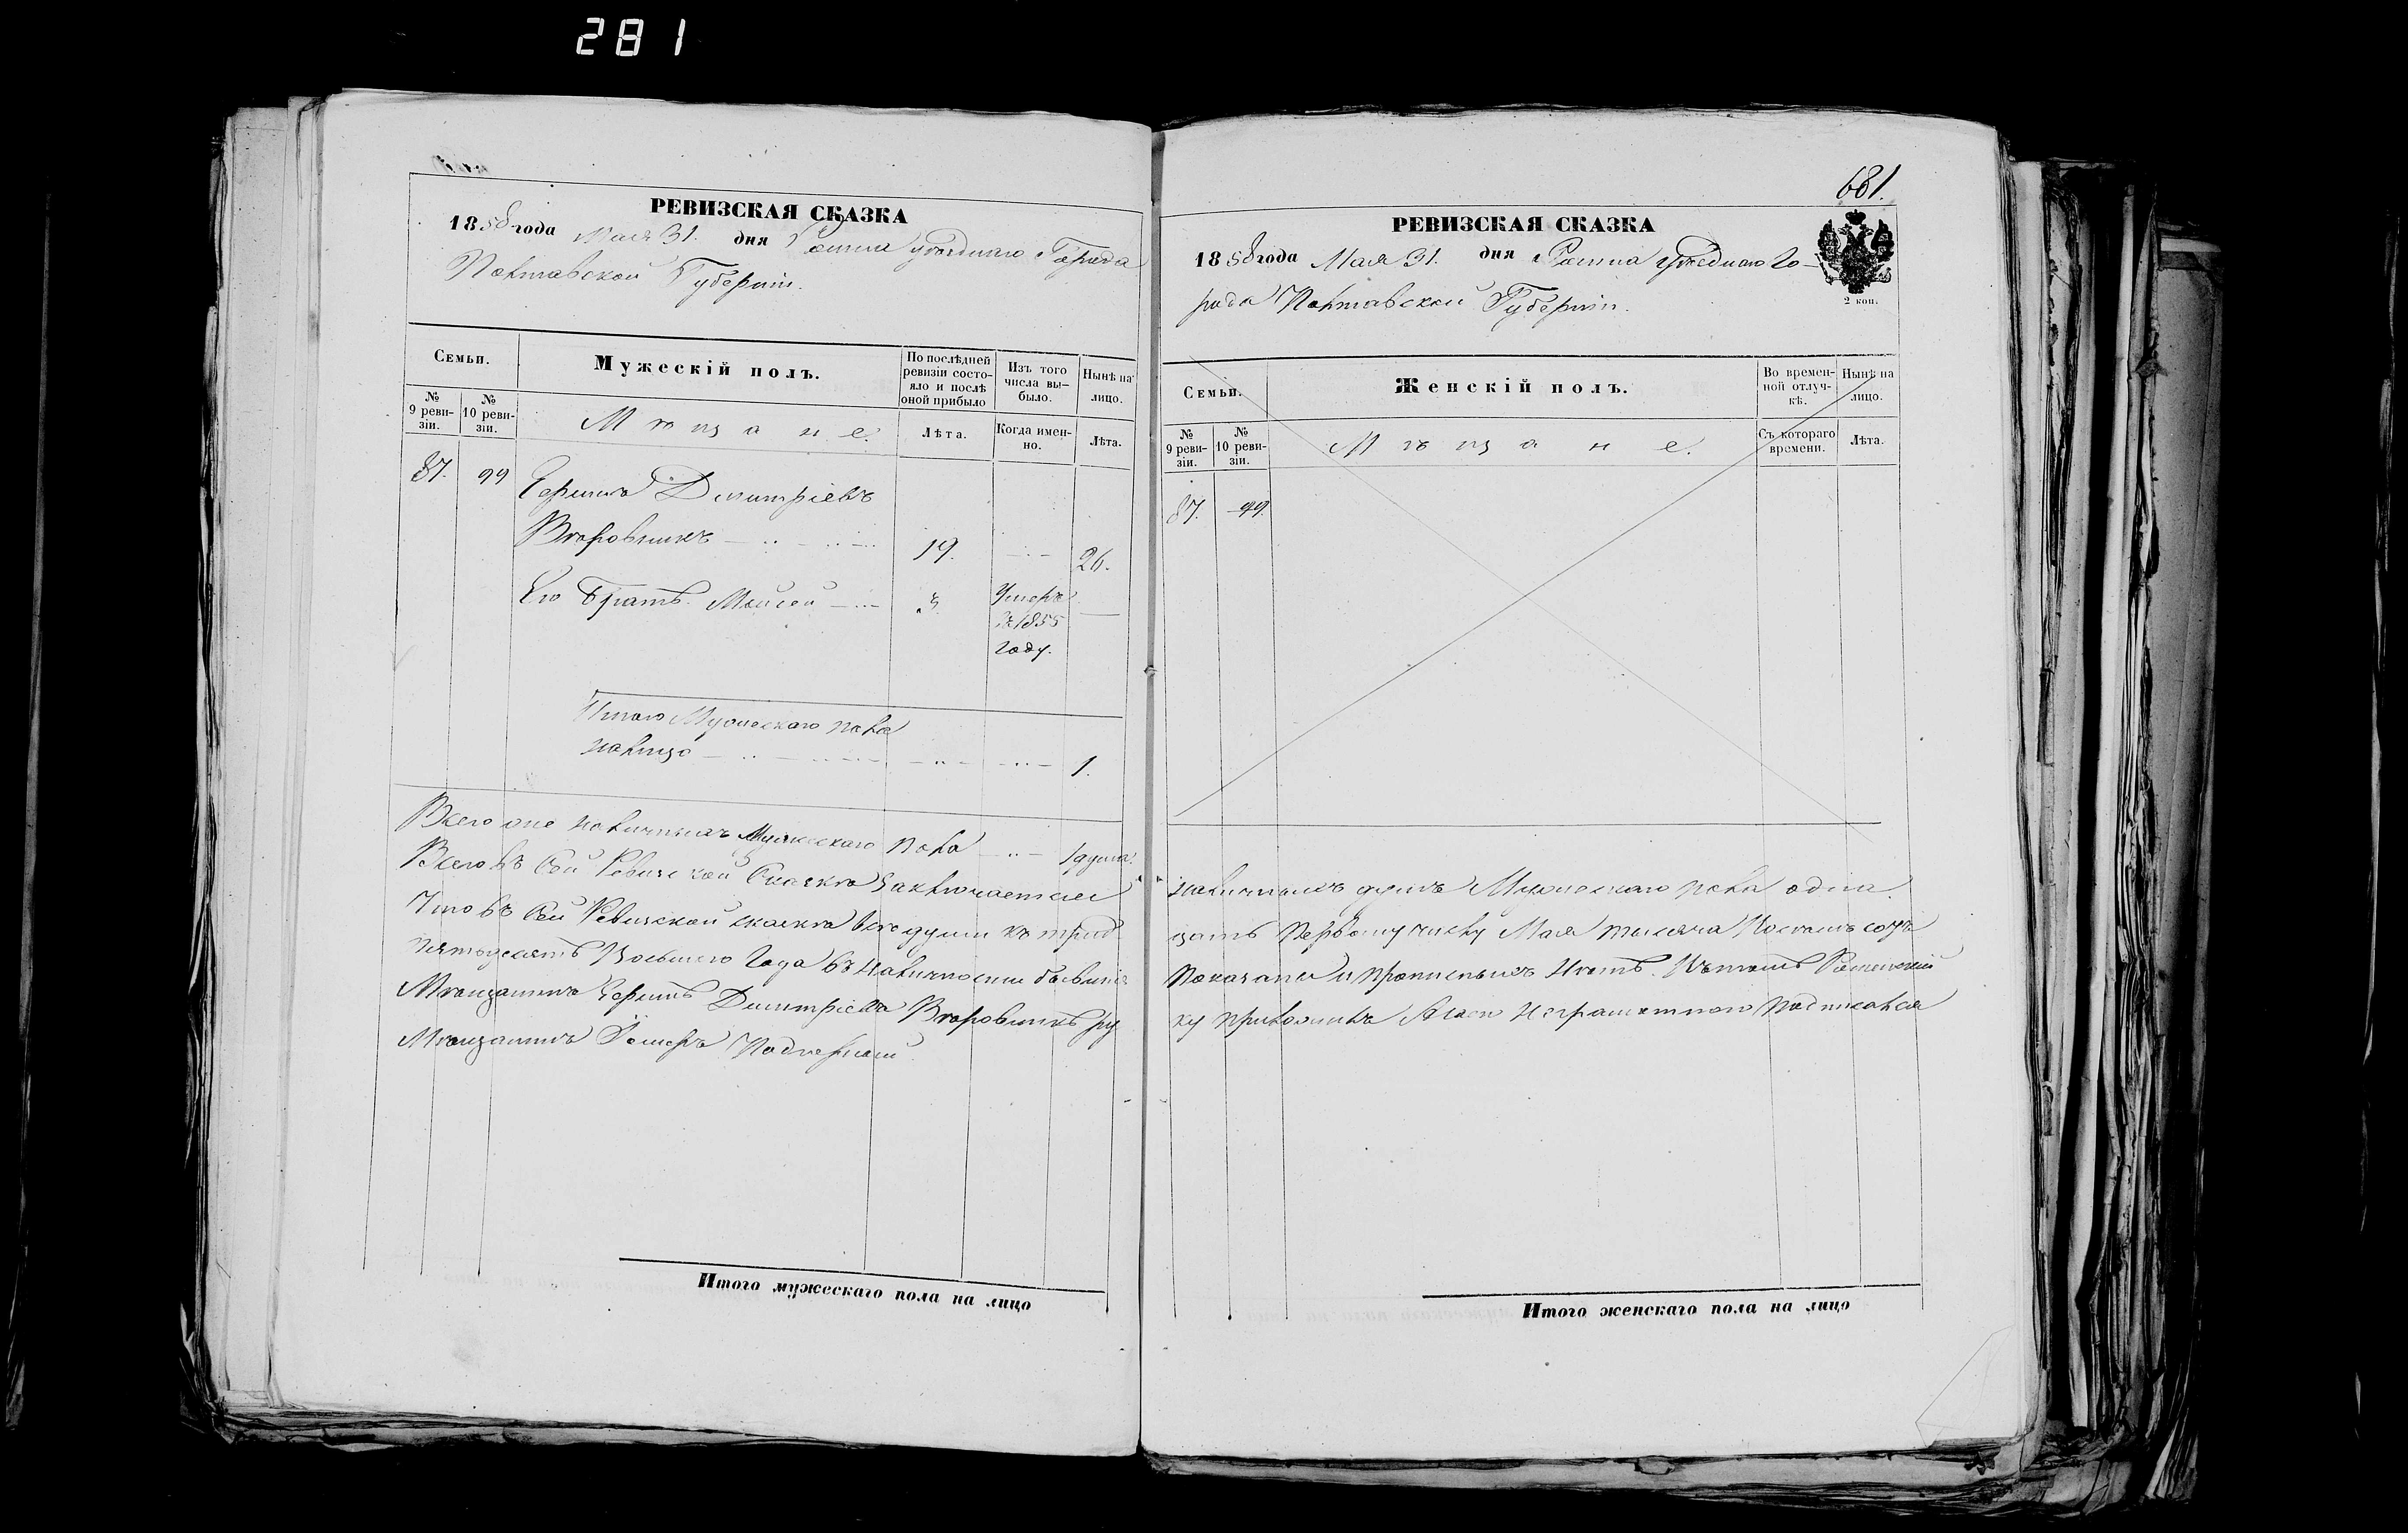 281
РЕВИЗСКАЯ СКАЗКА
1858 года Мая 31. дня Ромна уѣзднаго Города
Полтавской Губерніи.
Семьи.
Мужескій полъ.
По послѣдней ревизіи состо-
яло и послѣ
оной прибыло
Изъ того
числа вы-
было.
Нынѣ на
лицо.
№
9 реви-
зіи.
№
10 реви-
зіи.
Мѣщане.
Лѣта.
Когда имен-
но.
Лѣта.
87. 99
Дмитріевъ
19. 26.
Его Братъ Мойсей 3.
Умеръ
въ 1855
году.
Итого Мужескаго пола
налицо 1.
Всего оне наличныхъ Мужескаго пола 1 душа.
Всего въ Сей Ревизской Сказкѣ заключается
Что въ Сей Ревизской сказкѣ все души къ трид
пятьдесятъ Восьмого Года въ наличности бывшія
Мѣщанинъ Дмитріевъ ру
Мѣщанинъ
Итого мужескаго пола на лицо
681.
РЕВИЗСКАЯ СКАЗКА
1858 года Мая 31. дня Ромна Уѣзднаго Го-
рода Полтавской Губерніи.
2 коп.
Семьи.
Женскій полъ.
Во времен-
ной отлуч-
кѣ.
Нынѣ на
лицо.
№
9 реви-
зіи.
№
10 реви-
зіи.
Мѣщане.
Съ котораго
времени.
Лѣта.
87. 99.
наличныхъ душъ Мужескаго пола одна.
цать первому числу Мая тысяча Восемьсотъ
показаны и прописныхъ Нѣтъ. Въ томъ Роменскій
ку приложилъ неграмотного подписался
Итого женскаго пола на лицо